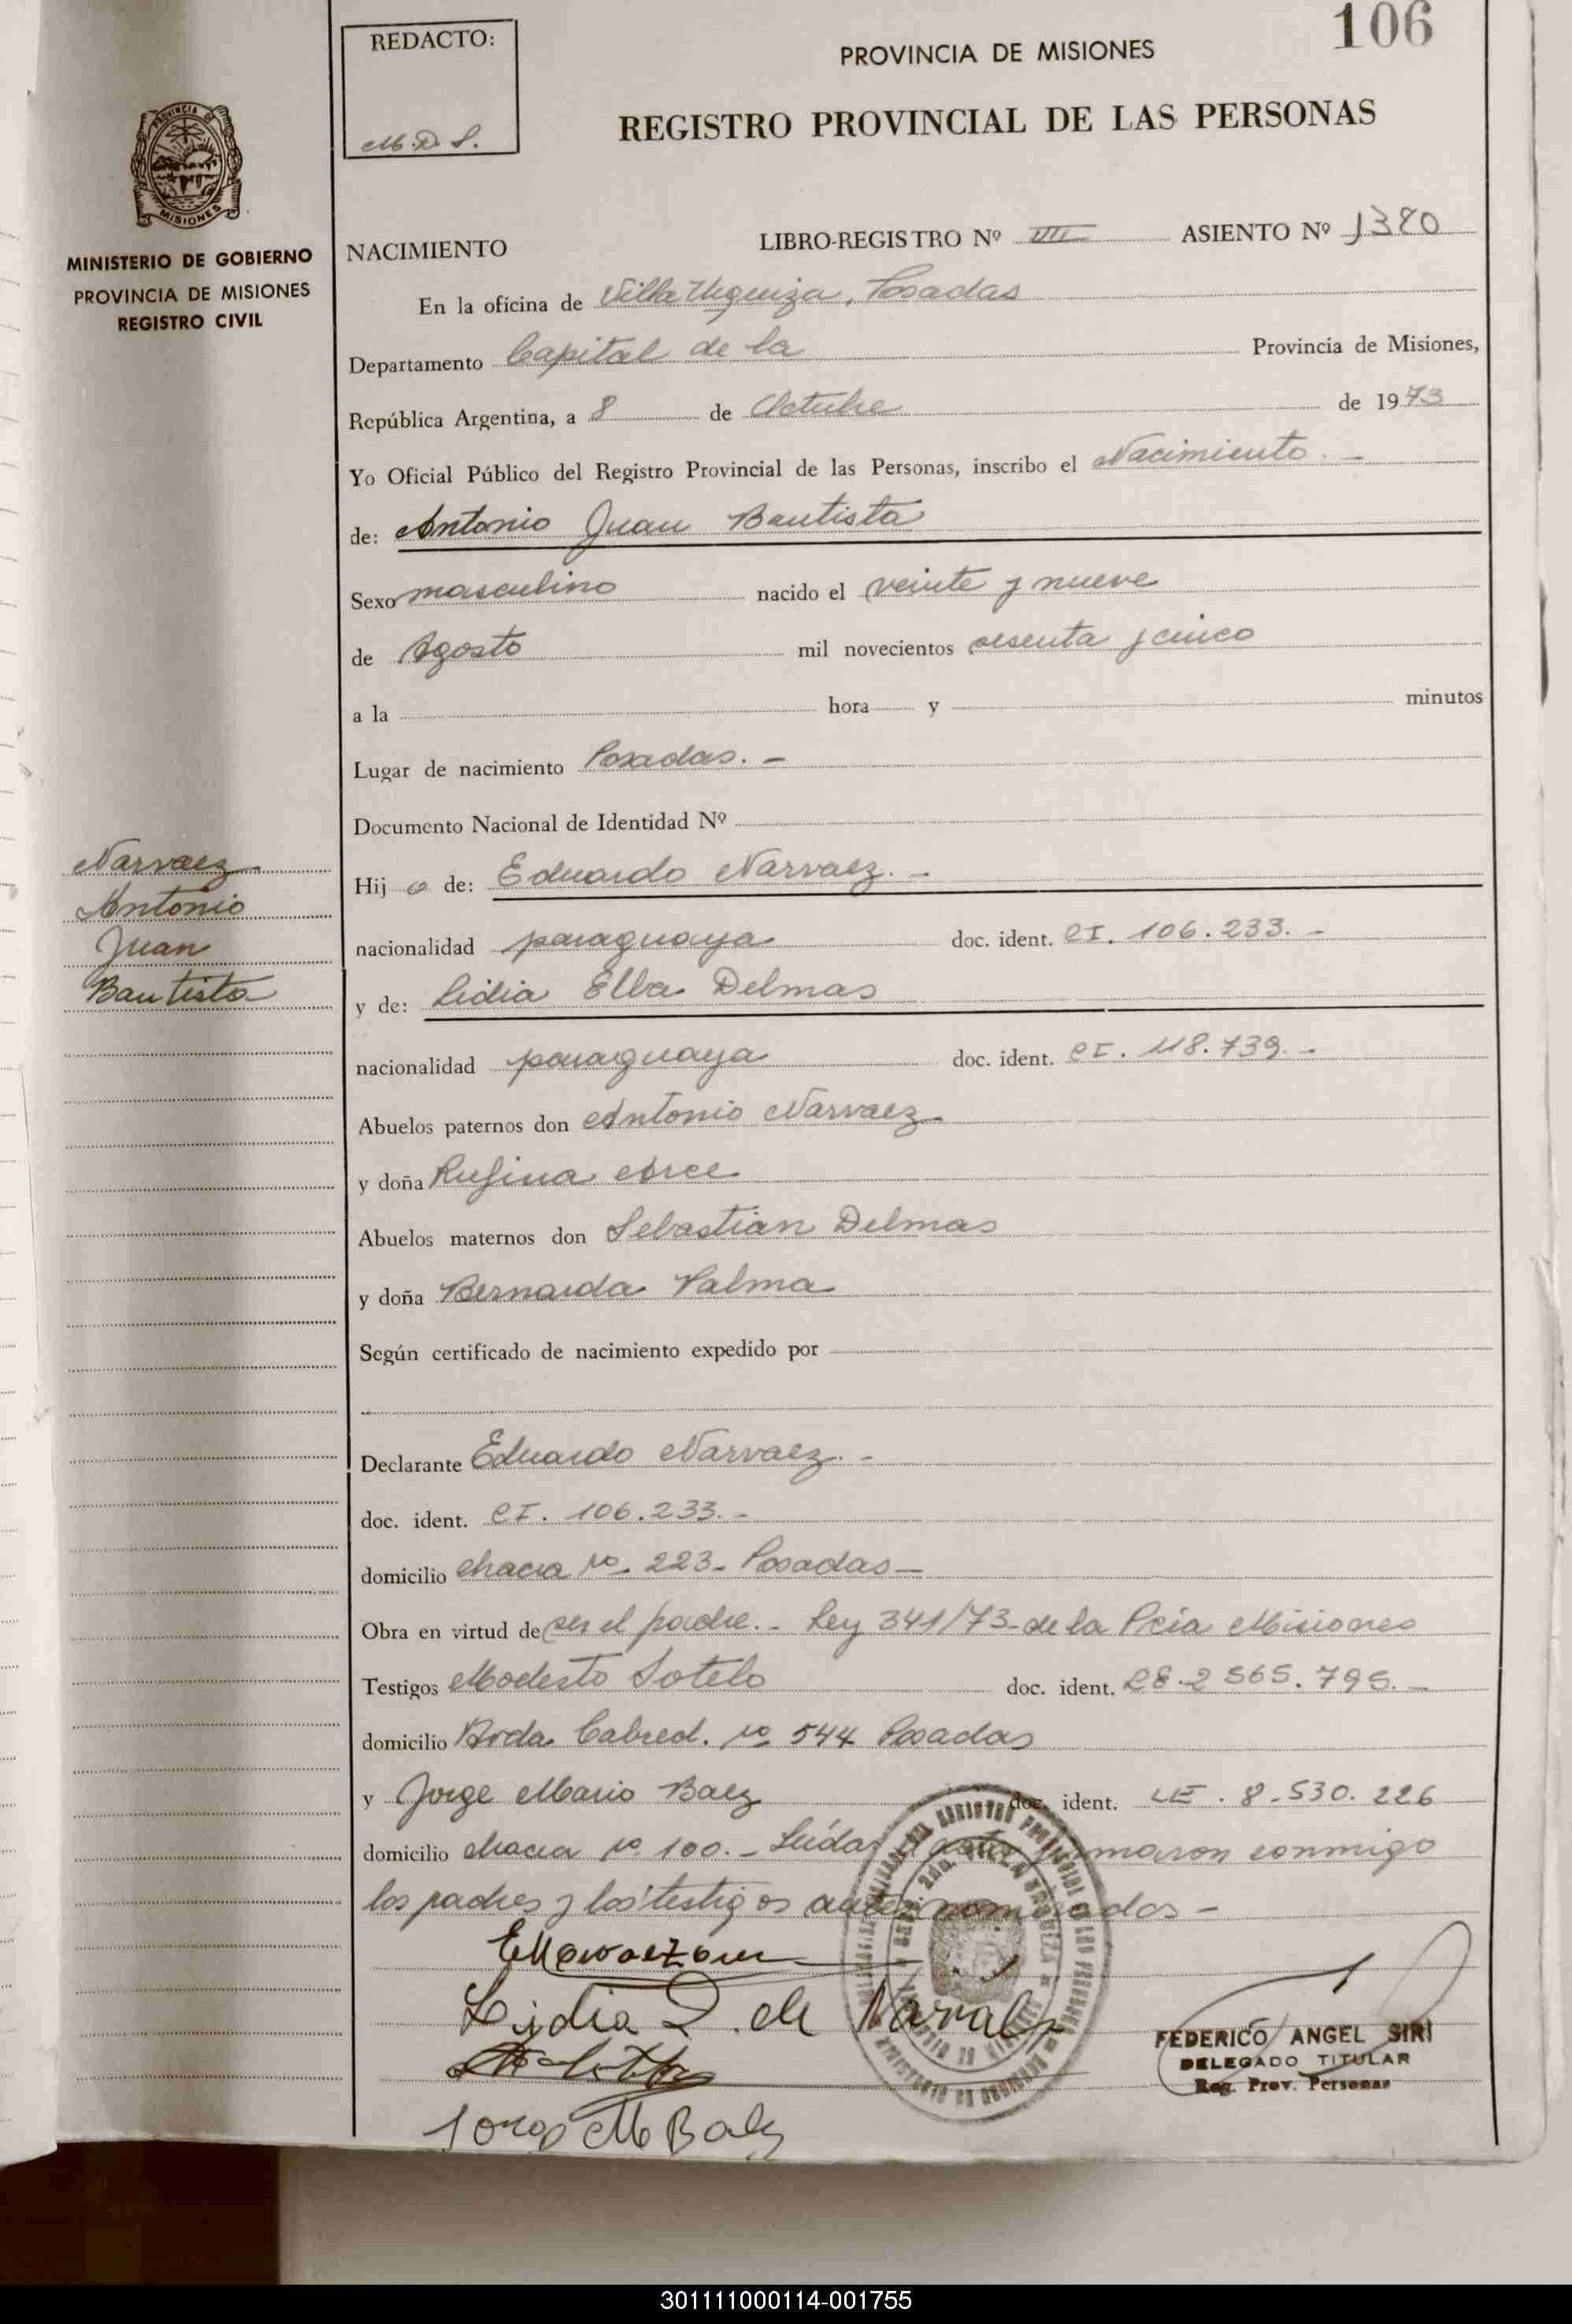 106
REDACTO:
M.D.S.
PROVINCIA DE MISIONES
REGISTRO PROVINCIAL DE LAS PERSONAS
PROVINCIA
MISIONES
MINISTERIO DE GOBIERNO
PROVINCIA DE MISIONES
REGISTRO CIVIL
NACIMIENTO LIBRO-REGISTRO Nº VIII ASIENTO Nº 1380
En la oficina de Villa Urquiza, Posadas
Departamento Capital de la Provincia de Misiones,
República Argentina, a 8 de Octubre de 1973
Yo Oficial Público del Registro Provincial de las Personas, inscribo el Nacimiento. -
de: Antonio Juan Bautista
Sexo masculino nacido el veinte y nueve
de Agosto mil novecientos sesenta y cinco
a la hora y minutos
Lugar de nacimiento Posadas. -
Documento Nacional de Identidad Nº
Narvaez
Antonio
Juan
Bautista
Hij o de: Eduardo Narvaez. -
nacionalidad paraguaya doc. ident. CI. 106.233. -
y de: Lidia Elba Delmas
nacionalidad paraguaya doc. ident. CI. 118.739. -
Abuelos paternos don Antonio Narvaez
y doña Rufina Arce
Abuelos maternos don Sebastian Delmas
y doña Bernarda Palma
Según certificado de nacimiento expedido por
Declarante Eduardo Narvaez. -
doc. ident. CI. 106.233. -
domicilio chacra Nº 223- Posadas -
Obra en virtud de ser el padre. - Ley 341/73 - de la Pcia Misiones
Testigos Modesto Sotelo doc. ident. LE. 2 565. 795. -
domicilio Avda Cabred. Nº 544 Posadas
y Jorge Mario Baez doc. ident. LE. 8.530.226
domicilio chacra Nº 100. - Leída firmaron conmigo
los padres y los testigos antes nombrados -
Lidia D. de Narvaez
Jorge M Baez
FEDERICO ANGEL SIRI
DELEGADO TITULAR
Reg. Prov. Personas
301111000114-001755